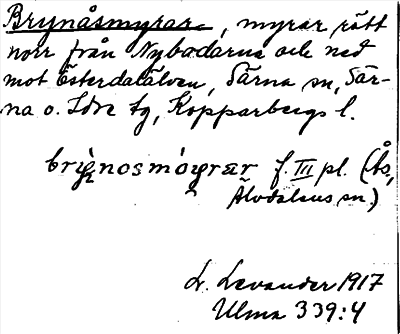 Brynåsmyrar, myrar rätt
norr från Nybodarna och ned
mot Österdalälven, Särna sn, Sär-
na o. Idre tg, Kopparbergs l.
brỳnosmóyrær f. III pl. (Ås,
Älvdalens sn.)
L. Levander 1917
Ulma 339:4